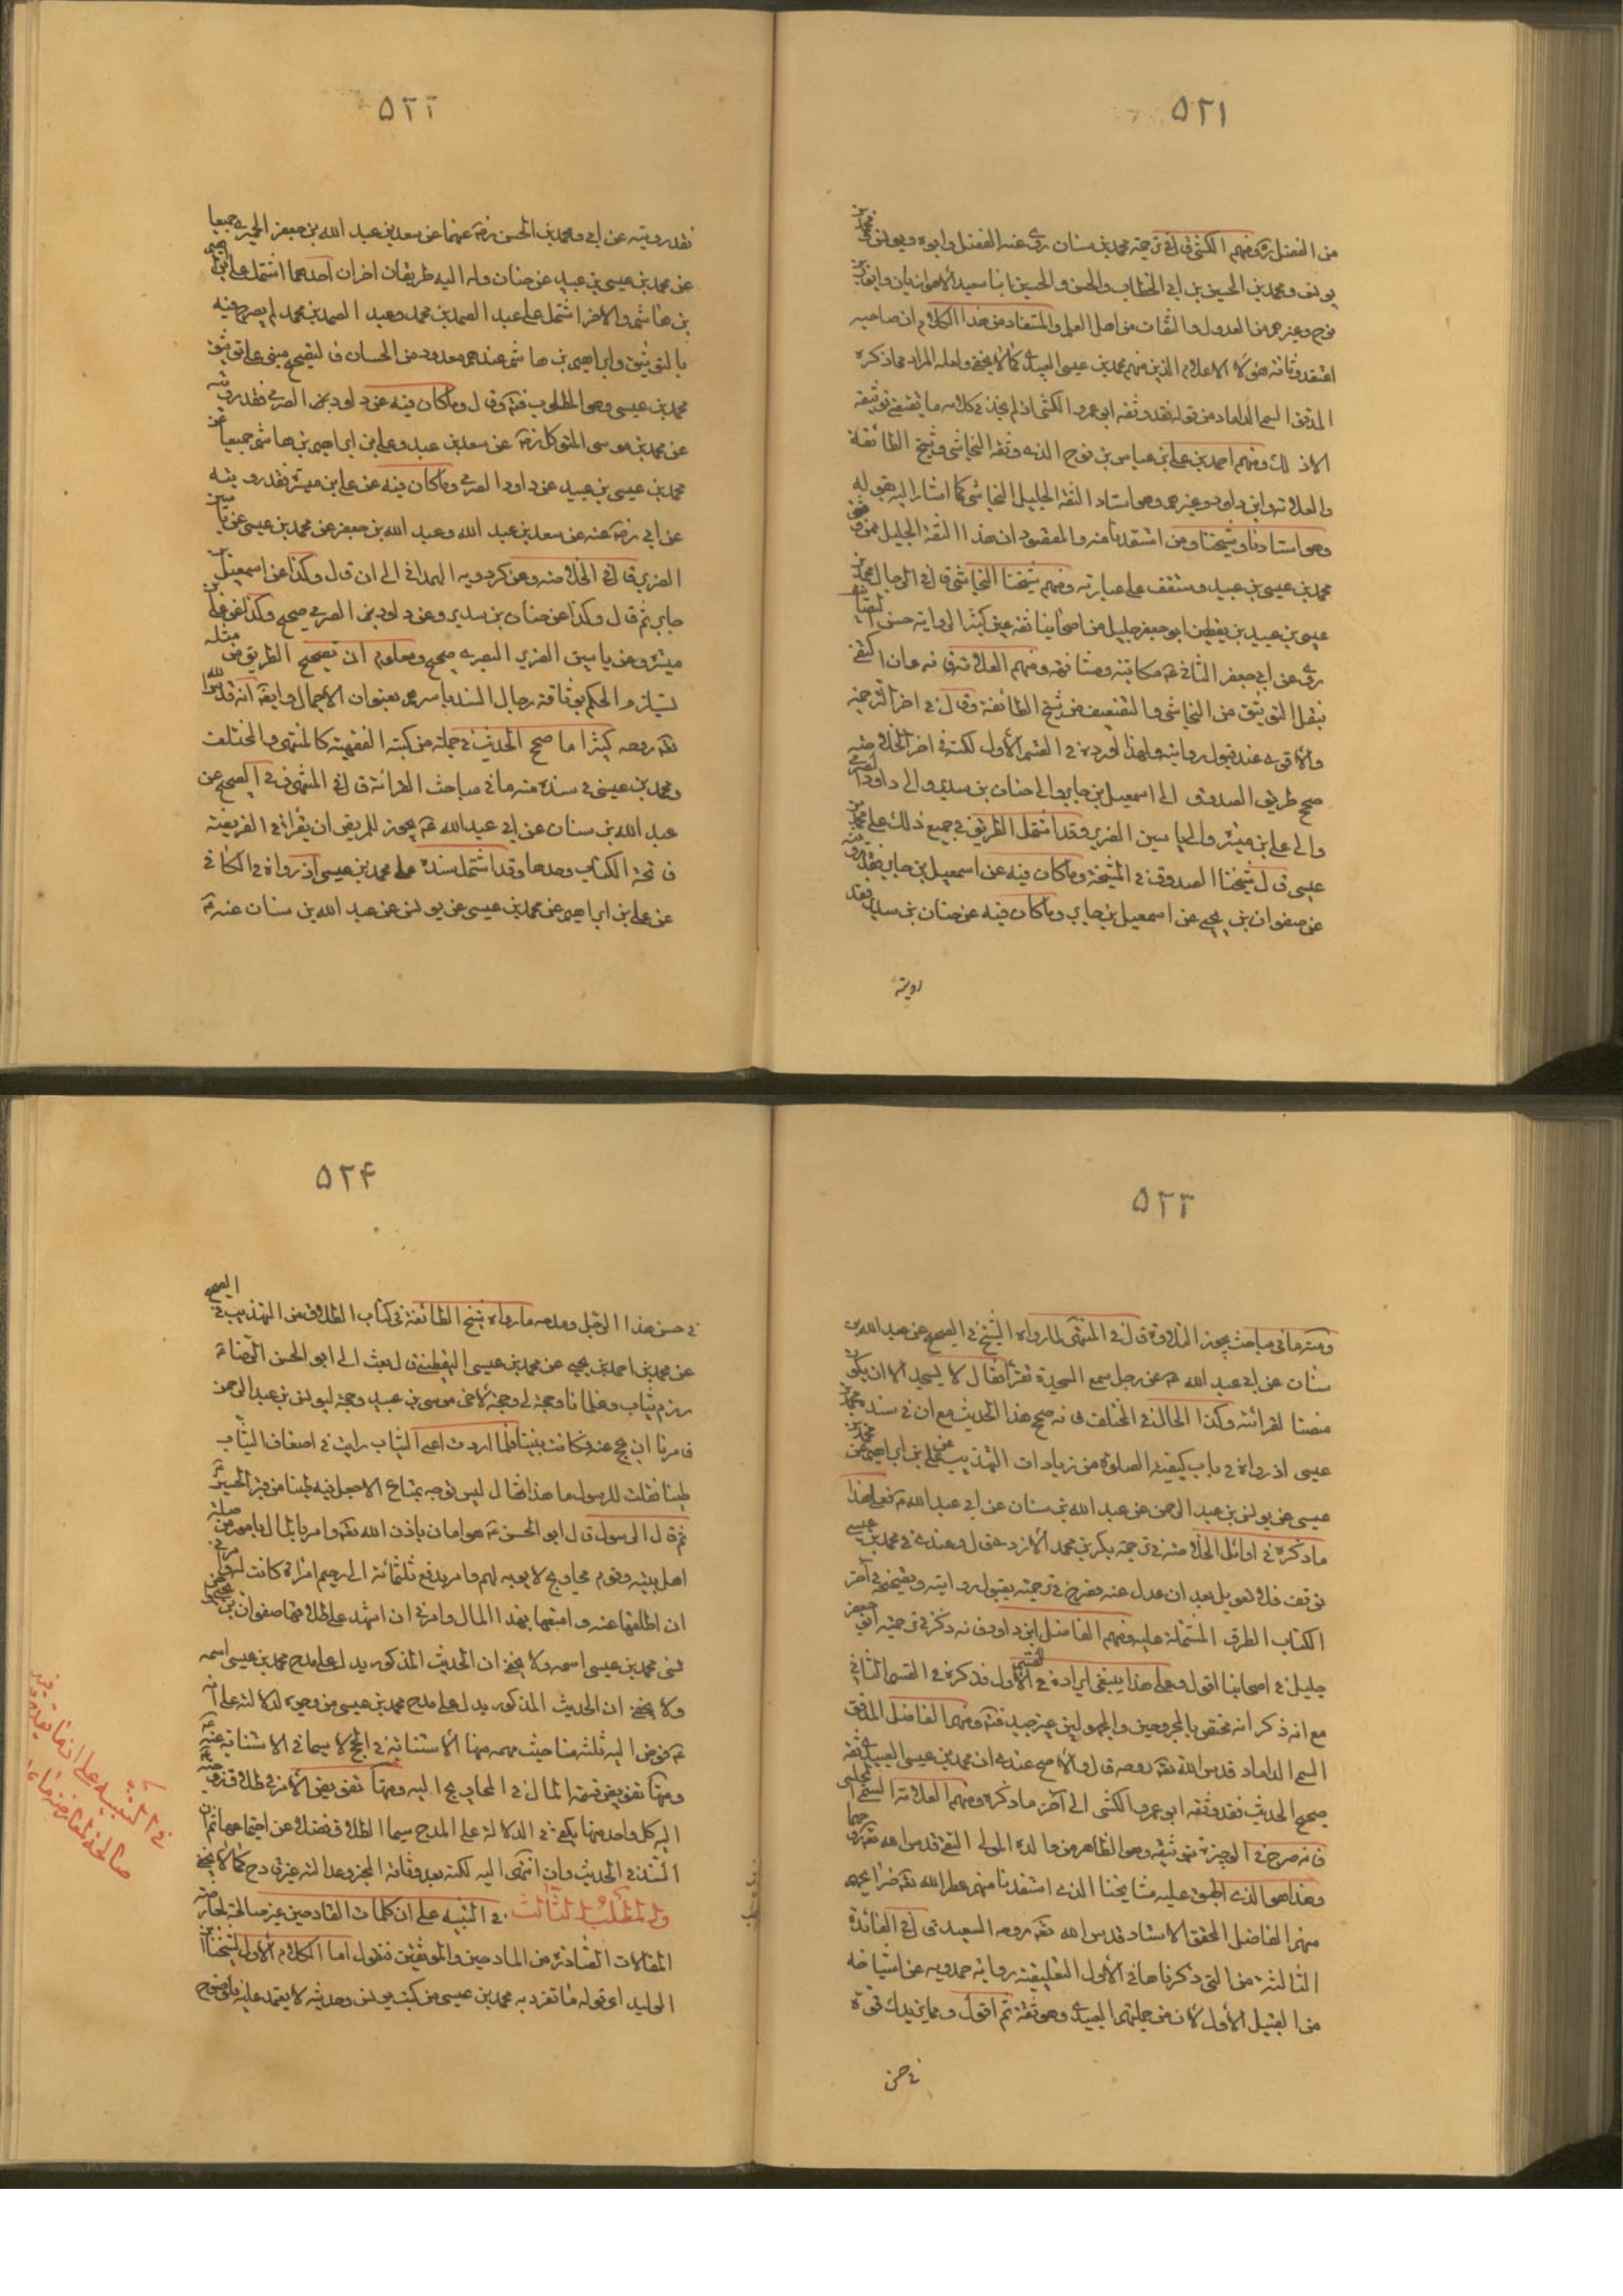 ٥٢١
من الفضل ره ومنهم الكشى قال في ترجمة محمد بن سنان روى عنه الفضل وابوه ويونس ومحمد بن
يونس ومحمد بن الحسين بن ابى الخطاب والحسن والحسين ابنا سعيد الاهوازيان وايوب بن
نوح وغيرهم من العدول والثقات من اهل العلم والمستفاد من هذا الكلام ان صاحبه
اعتقد وثاقة هؤلاء الاعلام الذين منهم محمد بن عيسى العبيدى كما لا يخفى ولعله المراد مما ذكره
المدقق السمى الداماد من قوله فقد وثقه ابو عمرو الكشى اذ لم نجد في كلامه ما يقتضى توثيقه
الا ذلك ومنهم احمد بن على بن عباس بن نوح الذى وثقه النجاشى وشيخ الطائفة
والعلامة وابن داود وغيرهم وهو استاد الثقة الجليل النجاشى كما اشار اليه بقوله
وهو استادنا وشيخنا ومن استفدنا منه والمقصود ان هذا الثقة الجليل ممن وثق
محمد بن عيسى بن عبيد وستقف على عبارته ومنهم شيخنا النجاشى قال في الرجال محمد بن
عيسى بن عبيد بن يقطين ابو جعفر جليل من اصحابنا ثقة عين كثير الرواية حسن التصانيف
روى عن ابى جعفر الثانى ع مكاتبة ومشافهة ومنهم العلامة فانه وان اكتفى
بنقل التوثيق من النجاشى والتضعيف من شيخ الطائفة وقال في اخر الترجمة
والاقوى عندى قبول روايته ولهذا اورده في القسم الأول لكنه في اخر الخلاصة
صحح طريق الصدوق الى اسمعيل بن جابر والى حنان بن سدير والى داود الصرمى
والى على بن ميسرة والى ياسين الضرير وقد اشتمل الطريق في جميع ذلك على محمد بن
عيسى قال شيخنا الصدوق في المشيخة وما كان فيه عن اسمعيل بن جابر فقد رويته
عن صفوان بن يحيى عن اسمعيل بن جابر وما كان فيه عن حنان بن سدير فقد
رويته
٥٢٢
فقد رويته عن ابى ومحمد بن الحسن رض عنهما عن سعد بن عبد الله بن جعفر الحميرى جميعا
عن محمد بن عيسى بن عبيد عن حنان وله اليه طريقان اخران احدهما اشتمل على ابراهيم
بن هاشم والاخر اشتمل على عبد الصمد بن محمد وعبد الصمد بن محمد لم يصرح فيه
بالتوثيق وابراهيم بن هاشم عندهم معدود من الحسان فالتصحيح مبنى على توثيق
محمد بن عيسى وهو المطلوب فته وقال وما كان فيه عن داود بن الصرمى فقد رويته
عن محمد بن موسى المتوكل رض عن سعد بن عبد وعلى بن ابراهيم بن هاشم جميعا عن
محمد بن عيسى بن عبيد عن داود الصرمى وما كان فيه عن على بن ميسرة فقد رويته
عن ابى رض عنه عن سعد بن عبد الله وعبد الله بن جعفر عن محمد بن عيسى عن ياسين
الضرير قال في الخلاصة وعن كردويه الهمدانى الى ان قال وكذا عن اسمعيل بن
جابر ثم قال وكذا عن حنان بن سدير وعن داود بن الصرمى صحيح وكذا عن على بن
ميسرة وعن ياسين الضرير البصرى صحيح ومعلوم ان تصحيح الطريق من مثله
يستلزم الحكم بوثاقة رجال السند باسرهم بعنوان الاجمال وايضا انه قدس الله
تعه روحه كثيرا ما صحح الحديث في جملة من كتبه الفقهية كالمنتهى والمختلف
ومحمد بن عيسى في سنده منه ما في مباحث القرائة قال في المنتهى في الصحيح عن
عبد الله بن سنان عن ابى عبد الله ع يجوز للمريض ان يقرأ في الفريضة
فاتحة الكتاب وحدها وقد اشتمل سنده على محمد بن عيسى اذ رواه في الكافى
عن على بن ابراهيم عن محمد بن عيسى عن يونس عن عبد الله بن سنان عنه ع
٥٢٣
ومنه ما في مباحث يجوز التلاوة قال في المنتهى لما رواه الشيخ في الصحيح عن عبد الله بن
سنان عن ابى عبد الله ع عن رجل سمع السجدة تقرأ قال لا يسجد الا ان يكون
منصتا لقرائته وكذا الحال في المختلف فانه صحح هذا الحديث مع ان في سنده محمد بن
عيسى اذ رواه في باب كيفية الصلوة من زيادات التهذيب عن على بن ابراهيم عن محمد بن
عيسى عن يونس بن عبد الرحمن عن عبد الله بن سنان عن ابى عبد الله ع فعلى هذا
ما ذكره في اوائل الخلاصة في ترجمة بكر بن محمد الأزدى قال وعندى في محمد بن عيسى
توقف فلا تعويل بعد ان عدل عنه فصرح في ترجمته بقبول روايته وبتصحيحه في آخر
الكتاب الطرق المشتملة عليه ومنهم الفاضل ابن داود فانه ذكر في ترجمة ابى جعفر
جليل في اصحابنا اقول وعلى هذا ينبغى ايراده في القسم الأول فذكره في القسم الثانى
مع انه ذكر انه مختص بالمجروحين والمجهولين غير جيد فته ومنهم الفاضل المدقق
السمى الداماد قدس الله تعه روحه قال والأصح عندى ان محمد بن عيسى العبيدى ثقة
صحيح الحديث فقد وثقه ابو عمرو الكشى الى آخر ما ذكره ومنهم العلامة السمى المجلسى
فانه صرح في الوجيزة بتوثيقه وهو الظاهر من والده المولى التقى قدس الله تعه روحهما
وهذا هو الذى اطبق عليه مشايخنا الذى استفدنا منهم عطر الله تعه ضرايحهم
منهم الفاضل المحقق الاستاد قدس الله تعه روحه السعيد قال في الفائدة
الثالثة من التى ذكرناها في الأول التعليقة رواية حمدويه عن اشياخه
من القبيل الأول لان من جملتهم العبيدى وهو ثقة ثم اقول ومما يزيدك قوة
في حسن
٥٢٤
في حسن هذا الرجل ومدحه ما رواه شيخ الطائفة في كتاب الطلاق من التهذيب في الصحيح
عن محمد بن احمد بن يحيى عن محمد بن عيسى اليقطينى قال بعث الى ابو الحسن الرضا ع
رزم ثياب وغلمانا وحجة لى وحجة لأخى موسى بن عبيد وحجة ليونس بن عبد الرحمن
فامرنا ان نحج عنه فكانت بيننا فلما اردت اعبى الثياب رايت في اضعاف الثياب
طينا فقلت للرسول ما هذا فقال ليس توجه بمتاع الا جعل فيه طينا من قبر الحسين ع
ثم قال الرسول قال ابو الحسن ع هو امان باذن الله تعه وامر بالمال بامور من صلة
اهل بيته وقوم محاويج لا يوبه لهم وامر بدفع ثلثمائة الى رحم امرأة كانت له وامرنى
ان اطلقها عنه وامتعها بهذا المال وامرنى ان اشهد على طلاقها صفوان بن يحيى واخر
نسى محمد بن عيسى اسمه ولا يخفى ان الحديث المذكور يدل على مدح محمد بن عيسى اسمه
ولا يخفى ان الحديث المذكور يدل على مدح محمد بن عيسى من وجوه لدلالته على انه
ع فوض اليه ثلثة منها حيث مهمه منها الأستنابة في الحج لا سيما في الاستنابة عنه ع
ومنها تفويض قسمة المال في المحاويج اليه ومنها تفويض الأمر في طلاق زوجته ع
اليه كل واحد منها يكفى في الدلالة على المدح سيما الطلاق فضلا عن اجتماعها ثم ان
السند في الحديث وان انتهى اليه لكنه بعد وثاقة المخبر وعدالته غير قادح كما لا يخفى
والمطلب الثالث في التنبيه على ان كلمات القادحين غير صالحة لمعارضة
المقالات الصادرة من المادحين والموثقين فنقول اما الكلام الأول لشيخنا ابن
الوليد اى قوله ما تفرد به محمد بن عيسى من كتب يونس وحديثه لا يعتمد عليه فلا وضوح